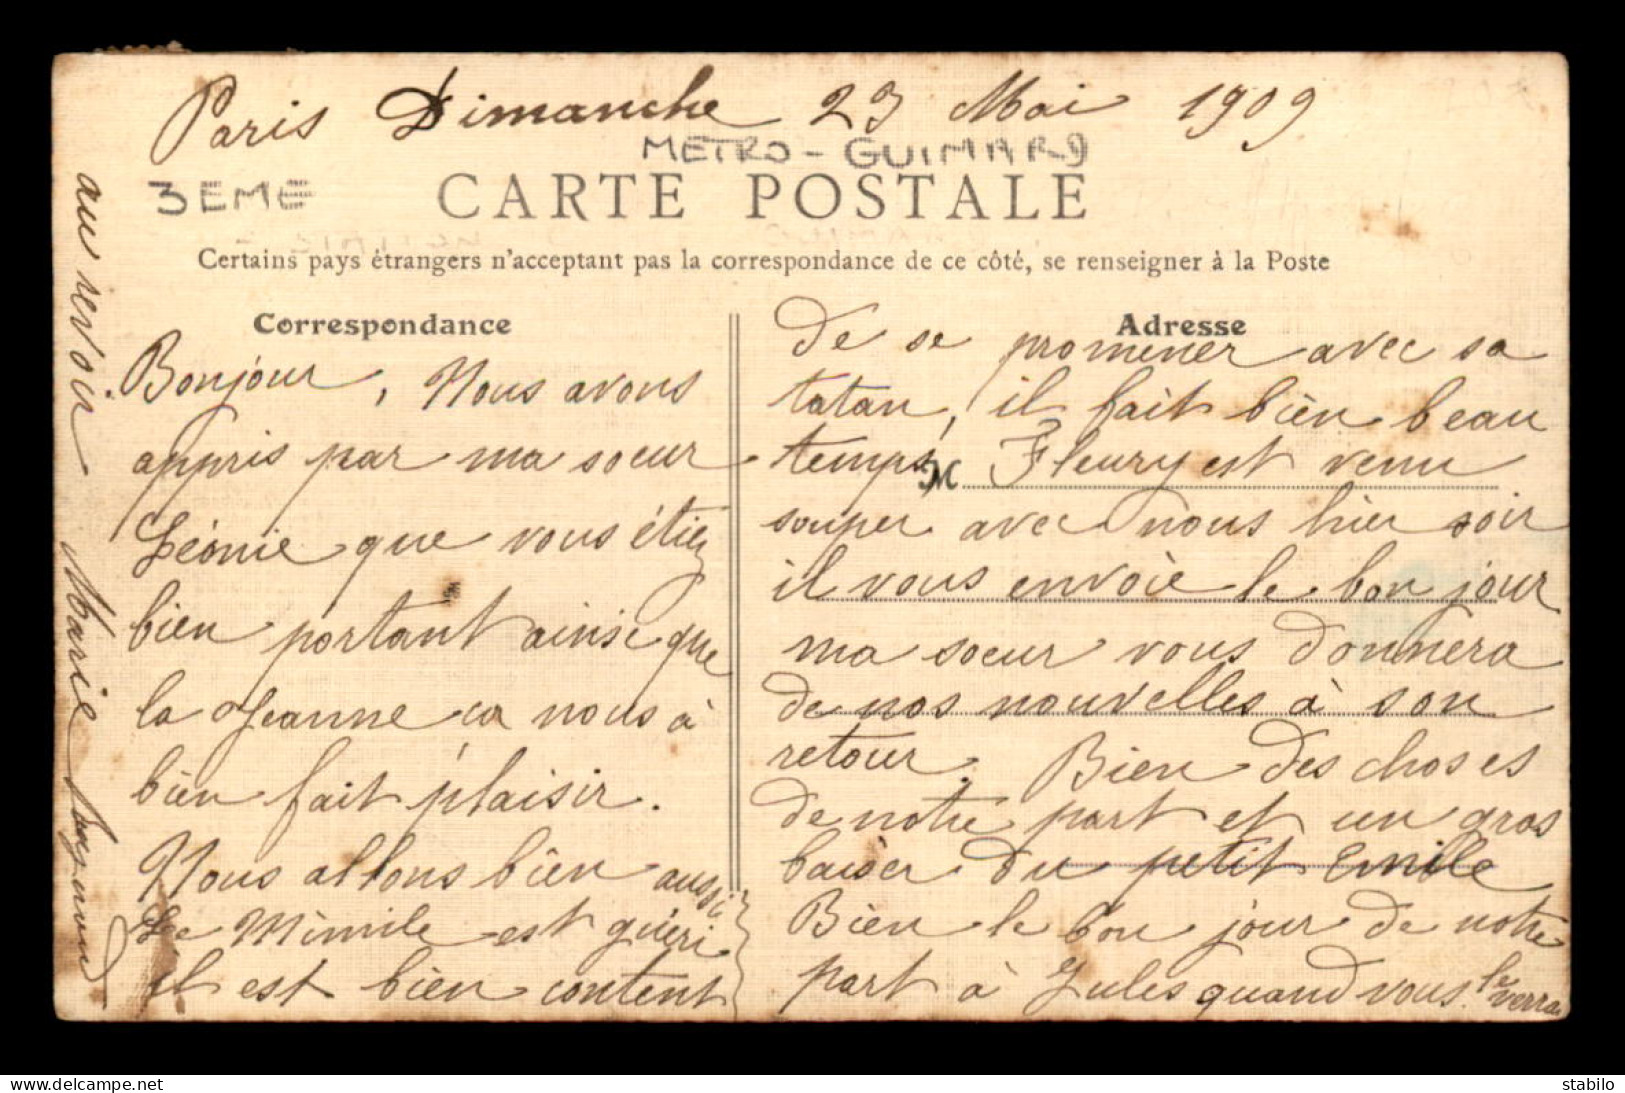 Paris Dimanche 23 Mai 1909
METRO - GUIMARD
3EME
CARTE POSTALE
Certains pays étrangers n'acceptent pas la correspondance de ce côté, se renseigner à la Poste
Correspondance
Bonjour, Nous avons
appris par ma soeur
Léonie que vous étiez
bien portant ainsi que
la Jeanne ça nous à
bien fait plaisir.
Nous allons bien aussi
Le Mimile est guéri
il est bien content
Adresse
de se promener avec sa
tatan, il fait bien beau
temps, M Fleury est venu
souper avec nous hier soir
il vous envoie le bon jour
ma soeur vous donnera
de nos nouvelles à son
retour. Bien des choses
de notre part et un gros
baiser du petit Emile
Bien le bon jour de notre
part à Jules quand vous le verrai
au revoir Marie
delcampe.net
stabilo